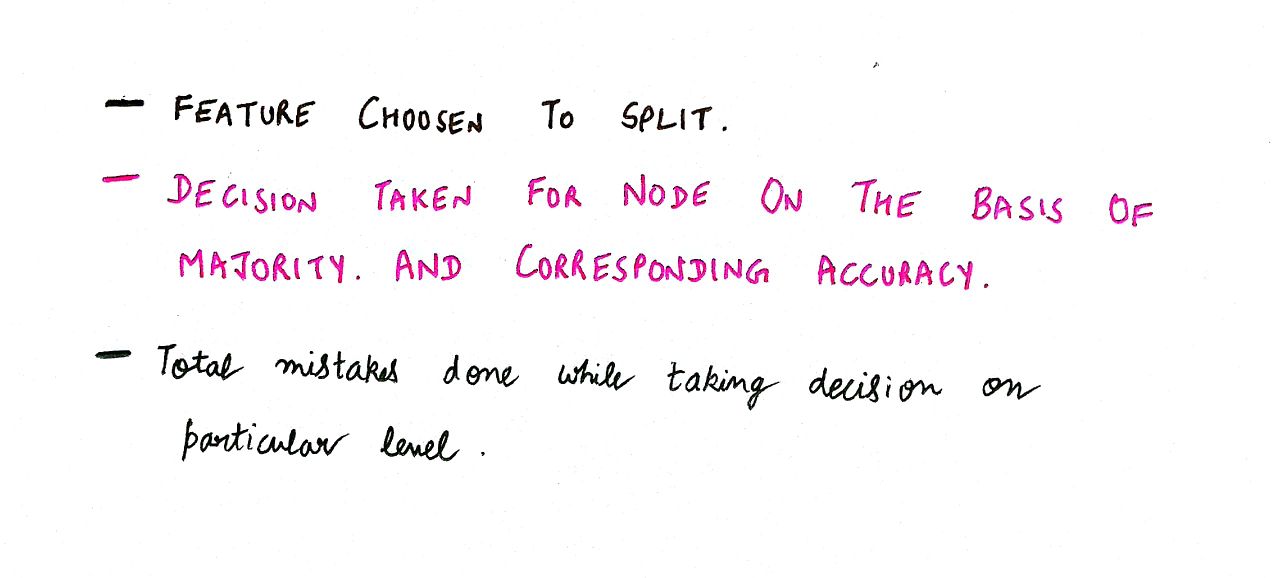 — FEATURE CHOOSEN TO SPLIT.
— DECISION TAKEN FOR NODE ON THE BASIS OF
MAJORITY. AND CORRESPONDING ACCURACY.
— Total mistakes done while taking decision on
particular level.